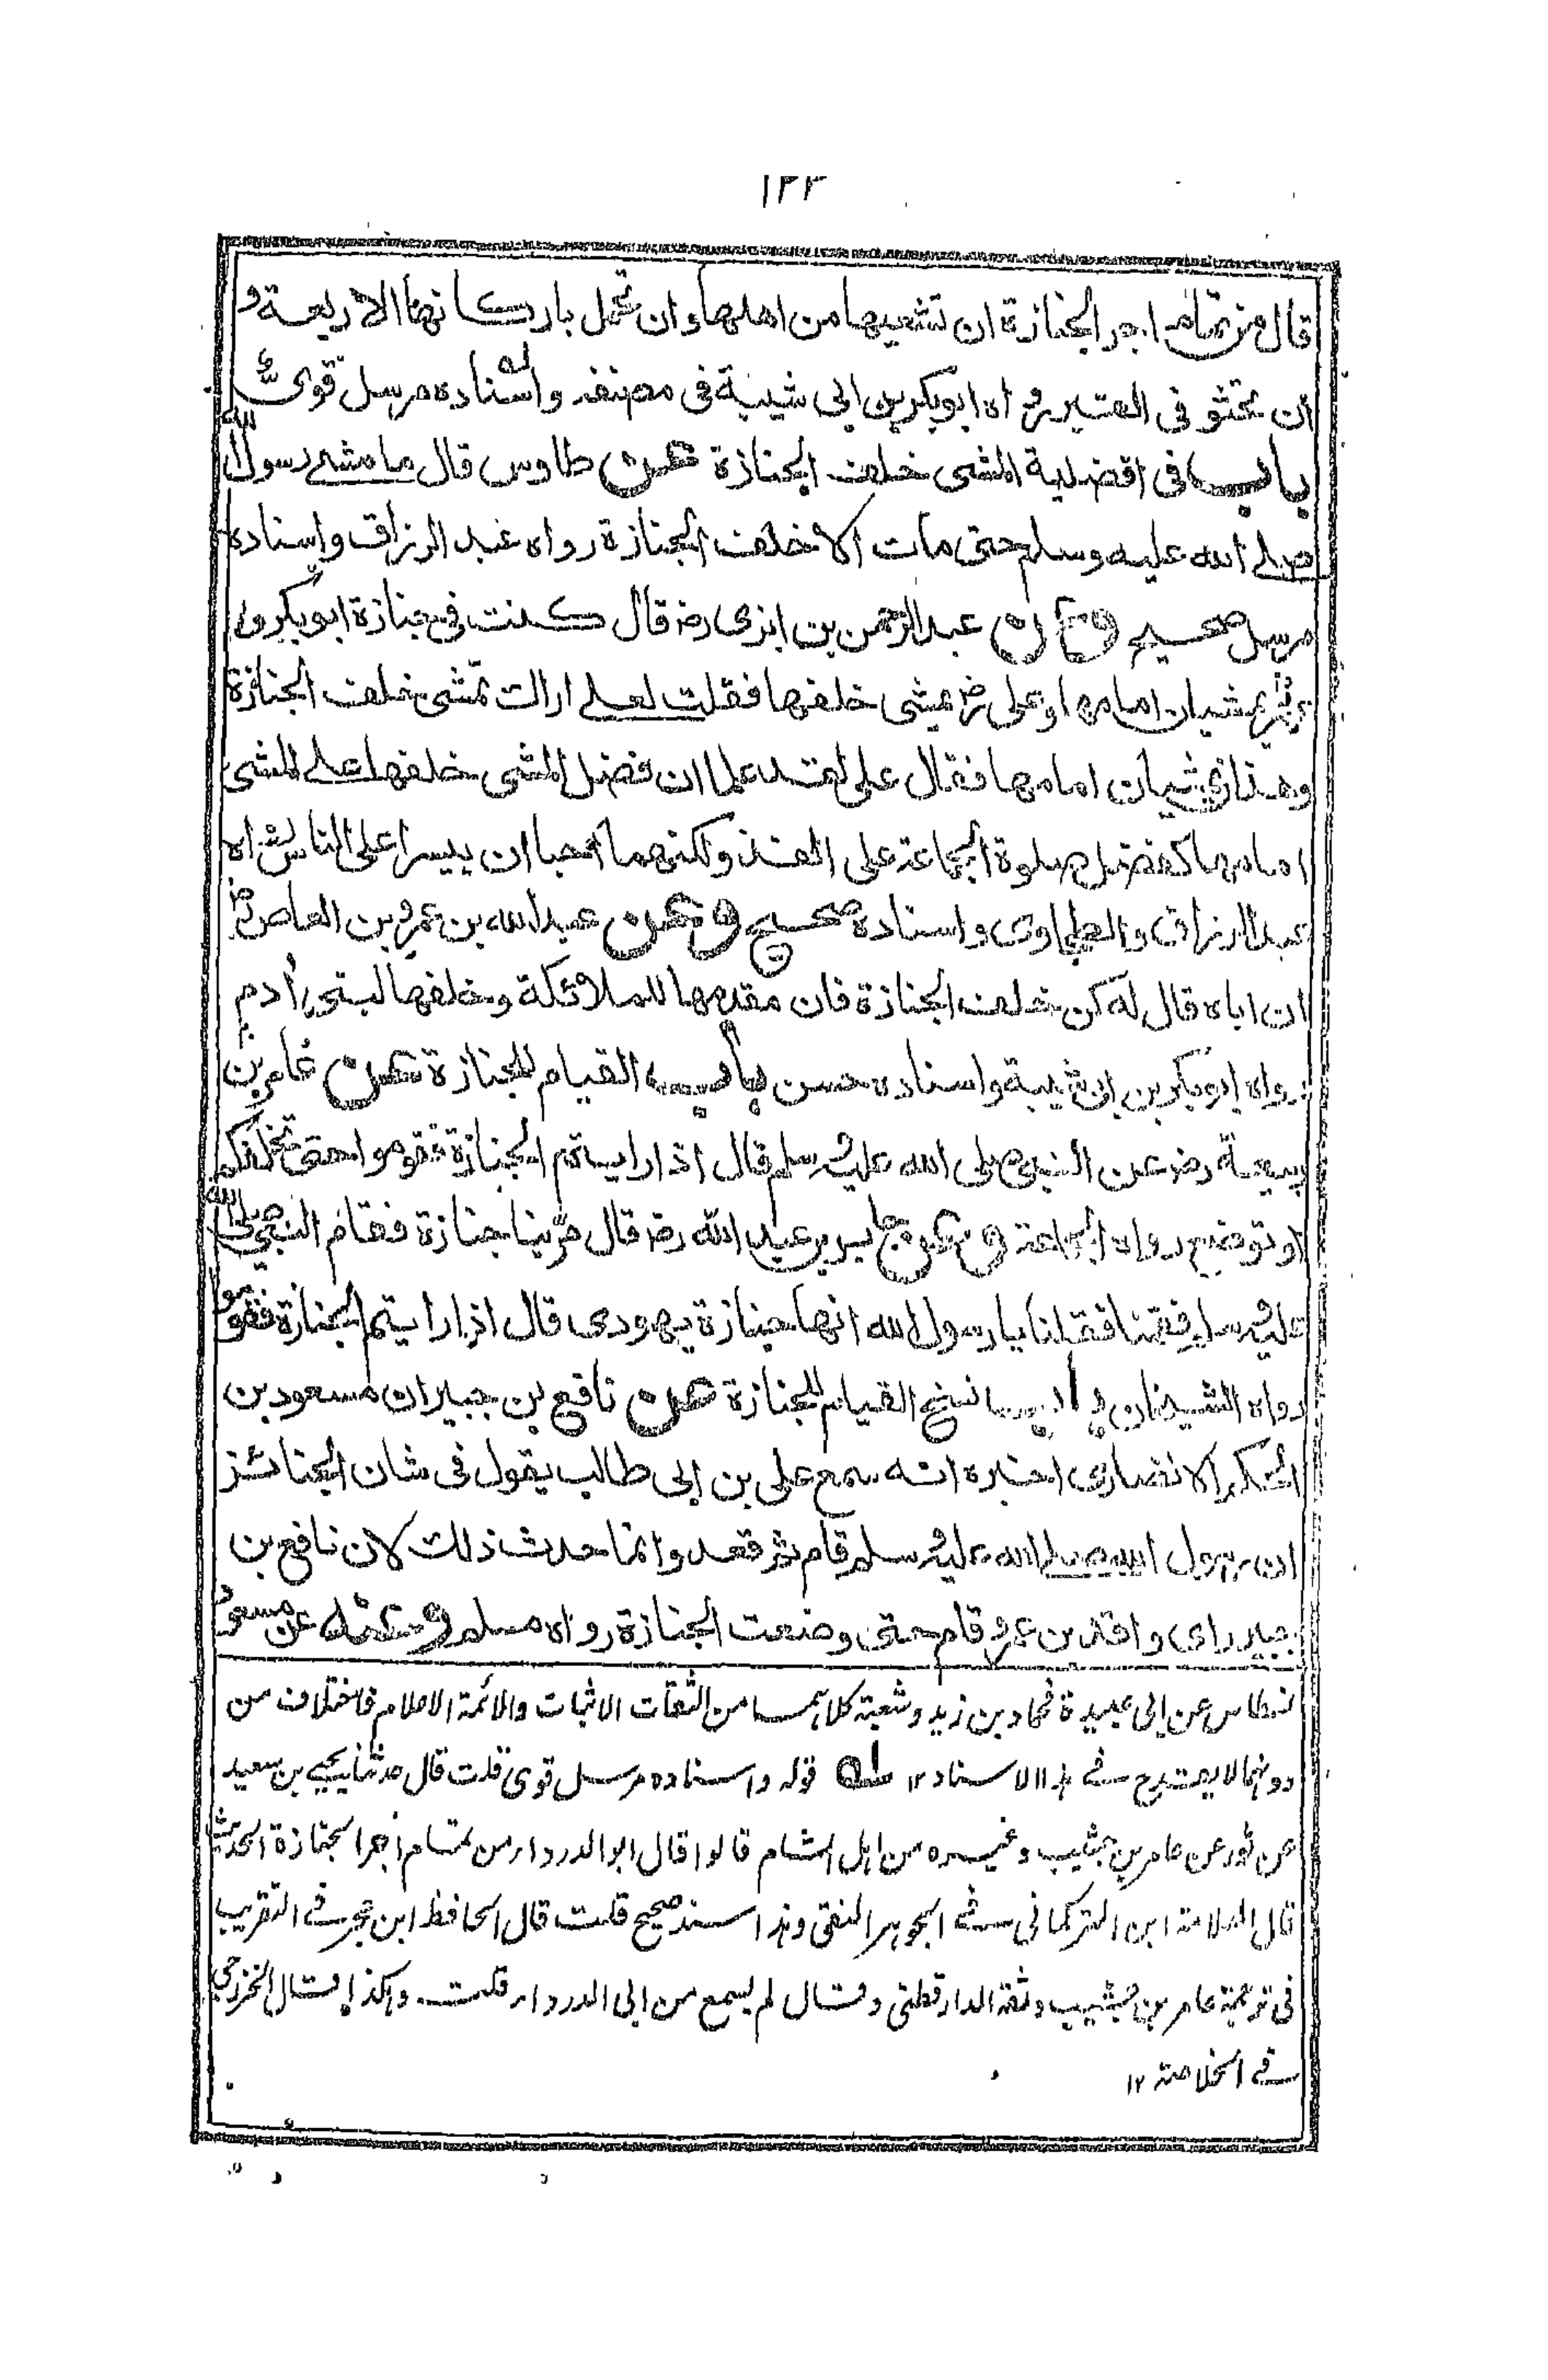 ١٢٣
قال من تمام اجر الجنازة ان تشيعها من اهلها وان تحمل باركانها الاربعة و
ان تحثو فى القبر رواه ابو بكر بن ابى شيبة فى مصنفه واسناده مرسل قوى
باب فى افضلية المشى خلف الجنازة عن طاوس قال ما مشى رسول الله
صلى الله عليه وسلم حتى مات الا خلف الجنازة رواه عبد الرزاق واسناده
مرسل صحيح وعن عبد الرحمن بن ابزى رض قال كنت فى جنازة ابو بكر و
عمر يمشيان امامها وعلى رض يمشى خلفها فقلت لعلى اراك تمشى خلف الجنازة
وهذان يمشيان امامها فقال على لقد علما ان فضل المشى خلفها على المشى
امامها كفضل صلوة الجماعة على الفذ ولكنهما احبا ان ييسرا على الناس رواه
عبد الرزاق والطحاوى واسناده صحيح وعن عبد الله بن عمرو بن العاص رض
ان اباه قال له كن خلف الجنازة فان مقدمها للملائكة وخلفها لبنى أدم
رواه ابو بكر بن ابى شيبة واسناده حسن باب القيام للجنازة عن عامر بن
ربيعة رض عن النبى صلى الله عليه وسلم قال اذا رايتم الجنازة فقوموا حتى تخلفكم
او توضع رواه الجماعة وعن جابر بن عبد الله رض قال مر بنا جنازة فقام النبى صلى الله
عليه وسلم فقمنا فقلنا يا رسول الله انها جنازة يهودى قال اذا رايتم الجنازة فقوموا
رواه الشيخان باب نسخ القيام للجنازة عن نافع بن جبير ان مسعود بن
الحكم الانصارى اخبره انه سمع على بن ابى طالب يقول فى شان الجنائز
ان رسول الله صلى الله عليه وسلم قام ثم قعد وانما حدث ذلك لان نافع بن
جبير راى واقد بن عمرو قام حتى وضعت الجنازة رواه مسلم وعنه عن مسعود
نسطاس عن ابى عبيدة فحماد بن زيد وشعبة كلاهما من الثقات الاثبات والائمة الاعلام فاختلاف من
دونهما لا يقدح فى هذا الاسناد ١٢ له قوله واسناده مرسل قوى قلت قال حدثنا يحيى بن سعيد
عن ثور عن عامر بن جشيب وغيره من اهل الشام قالوا قال ابو الدرداء من تمام اجر الجنازة الحديث
قال العلامة ابن التركمانى فى الجوهر النقى وهذا سند صحيح قلت قال الحافظ ابن حجر فى التقريب
فى ترجمة عامر بن جشيب وثقه الدارقطنى وقال لم يسمع من ابى الدرداء قلت وهكذا قال الخزرجى
فى الخلاصة ١٢